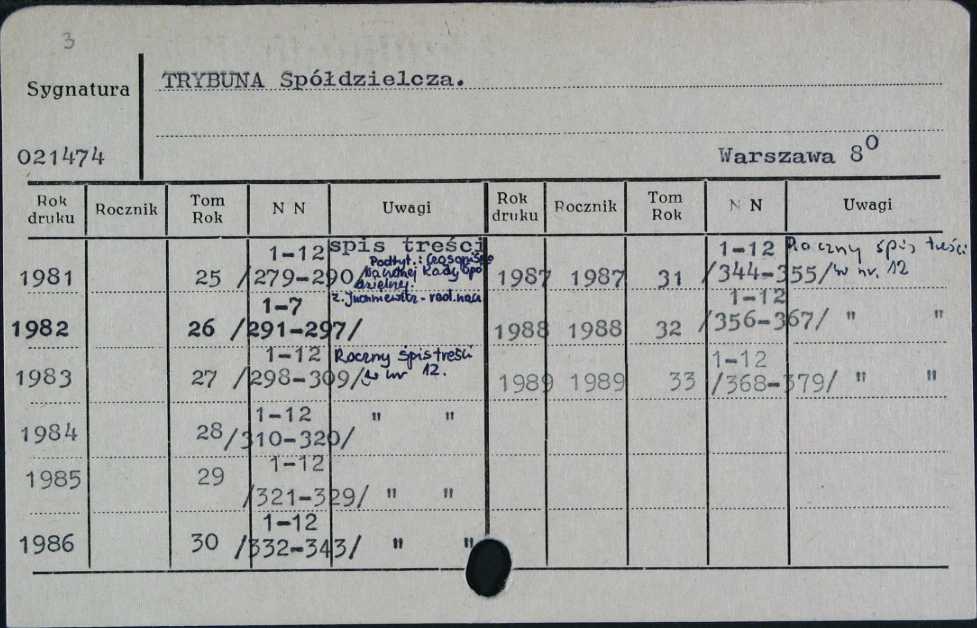 3
Sygnatura
TRYBUNA Spółdzielcza.
021474
Warszawa 8⁰
Rok druku Rocznik Tom Rok N N Uwagi Rok druku Rocznik Tom Rok N N Uwagi
1981 25 1-12 /279-290/ spis treści
Podtyt.: Czasopismo
Naczelnej Rady Spó
dzielnej.
1982 26 1-7 /291-297/
1983 27 1-12 /298-309/ Roczny spis treści
w nr 12.
1984 28 1-12 /310-320/ " "
1985 29 1-12 /321-329/ " "
1986 30 1-12 /332-343/ " "
1987 1987 31 1-12 /344-355/ Roczny spis treści
w nr. 12
1988 1988 32 1-12 /356-367/ " "
1989 1989 33 1-12 /368-379/ " "